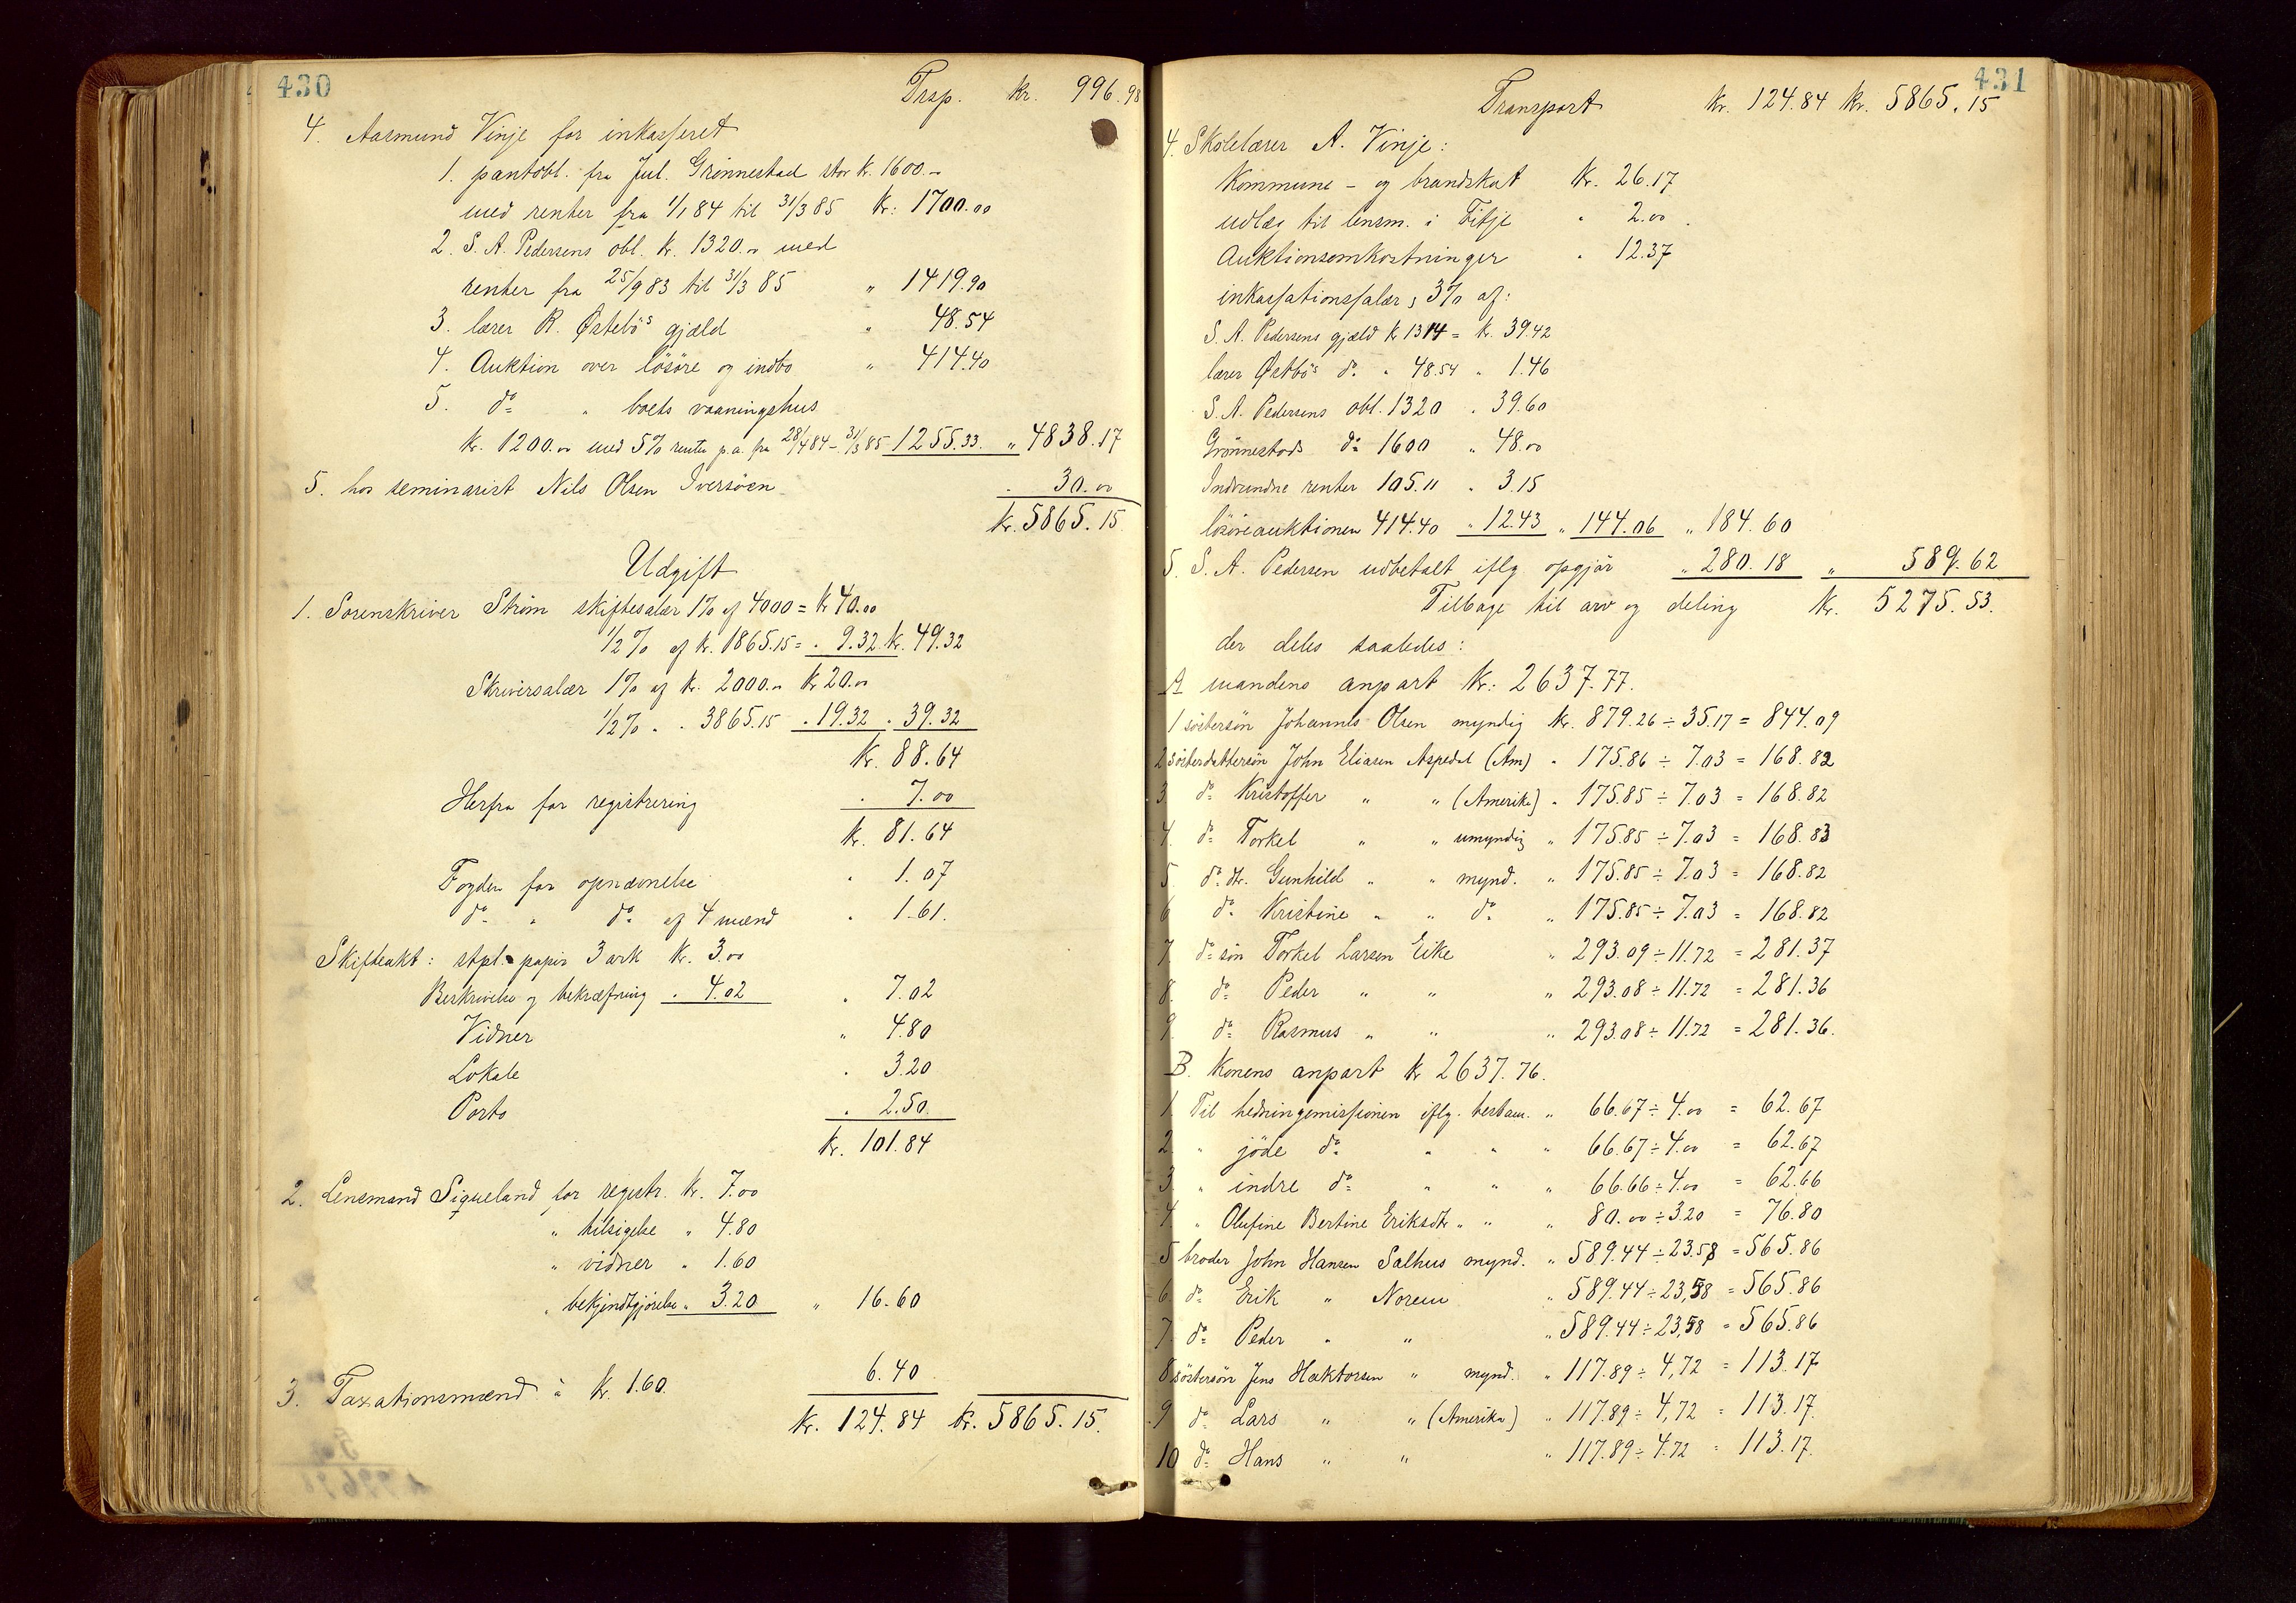 430
Trsp. kr. 996.98
4. Aasmund Vinje for inkasseret
1. pantobl. fra Jul. Grönnestad stor kr. 1600.-
med renter fra 1/1 84 til 31/3 85 kr: 1700.00
2. S. A. Pedersens obl. kr. 1320.- med
renter fra 25/9 83 til 31/3 85 " 1419.90
3. lærer R. Østebö's gjæld " 48.54
4. Auktion over lösöre og indbo " 414.40
5. do " boets vaaningshus
kr. 1200.00 med 5% renter p.a. fra 28/4 84 - 31/3 85 1255.33. " 4838.17
5. hos seminarist Nils Olsen Iversöen " 30.00
kr. 5865.15
Udgift
1. Sorenskriver Ström skiftesalær 1% af 4000 = kr 40.00
1/2% af kr. 1865.15 = " 9.32 kr. 49.32
Skriversalær 1% af kr. 2000.00 kr 20.00
1/2% " " 3865.15 " 19.32 " 39.32
kr. 88.64
Herfra for registrering " 7.00
kr. 81.64
Fogden for opnævnelse " 1.07
do " do af 4 mænd " 1.61.
Skifteakt: stpl. papir 3 ark kr. 3.00
Beskrivelse og bekræftning " 4.02 " 7.02
Vidner " 4.80
Lokale " 3.20
Porto " 2.50.
kr. 101.84
2. Lensmand Sigveland for registr. kr. 7.00
" tilsigelse " 4.80
" vidner " 1.60
" bekjendtgjörelse " 3.20 " 16.60
3. Taxationsmænd à kr. 1.60. 6.40
kr. 124.84 kr. 5865.15.
431
Transport kr. 124.84 kr. 5865.15
4. Skolelærer A. Vinje:
Kommune - og brandskat kr. 26.17
udlæg til lensm. i Fitje " 2.00
Auktionsomkostninger " 12.37
inkassationssalær, 3% af:
S. A. Pedersens gjæld kr 1314 = kr. 39.42
lærer Østbö's do " 48.54 " 1.46
S. A. Pedersens obl. 1320 " 39.60
Grönnestads do 1600 " 48.00
Indvundne renter 105.11 " 3.15
lösöreauktionen 414.40 " 12.43 " 144.06 " 184.60
5. S. A. Pedersen udbetalt iflg opgjör " 280.18 " 589.62
Tilbage til arv og deling kr. 5275.53.
der deles saaledes:
A mandens anpart kr: 2637.77.
1 söstersön Johannes Olsen myndig kr. 879.26 ÷ 35.17 = 844.09
2 sösterdattersön John Eliasen Aspedal (Am) " 175.86 ÷ 7.03 = 168.82
3. do Kristoffer " " (Amerika) " 175.85 ÷ 7.03 = 168.82
4. do Torkel " " umyndig " 175.85 ÷ 7.03 = 168.83
5 do dtr. Gunhild " " mynd. " 175.85 ÷ 7.03 = 168.82
6 do Kristine " " do " 175.85 ÷ 7.03 = 168.82
7. do sön Torkel Larsen Eike " 293.09 ÷ 11.72 = 281.37
8. do Peder " " " 293.08 ÷ 11.72 = 281.36
9. do Rasmus " " " 293.08 ÷ 11.72 = 281.36.
B. Konens anpart kr 2637.76.
1. Til hedningemissionen iflg. testam. " 66.67 ÷ 4.00 = 62.67
2. " jöde do " " " 66.67 ÷ 4.00 = 62.67
3 " indre do " " " 66.66 ÷ 4.00 = 62.66
4 " Olufine Bertine Eriksdtr " " " 80.00 ÷ 3.20 = 76.80
5 broder John Hansen Salhus mynd. " 589.44 ÷ 23.58 = 565.86
6. do Erik " Norem " 589.44 ÷ 23,58 = 565.86
7 do Peder " " " 589.44 ÷ 23,58 = 565.86
8 söstersön Jens Haktorsen " mynd. " 117.89 ÷ 4,72 = 113.17
9 do Lars " " (Amerika) " 117.89 ÷ 4,72 = 113.17.
10 do Hans " " " 117.89 ÷ 4.72 = 113.17.